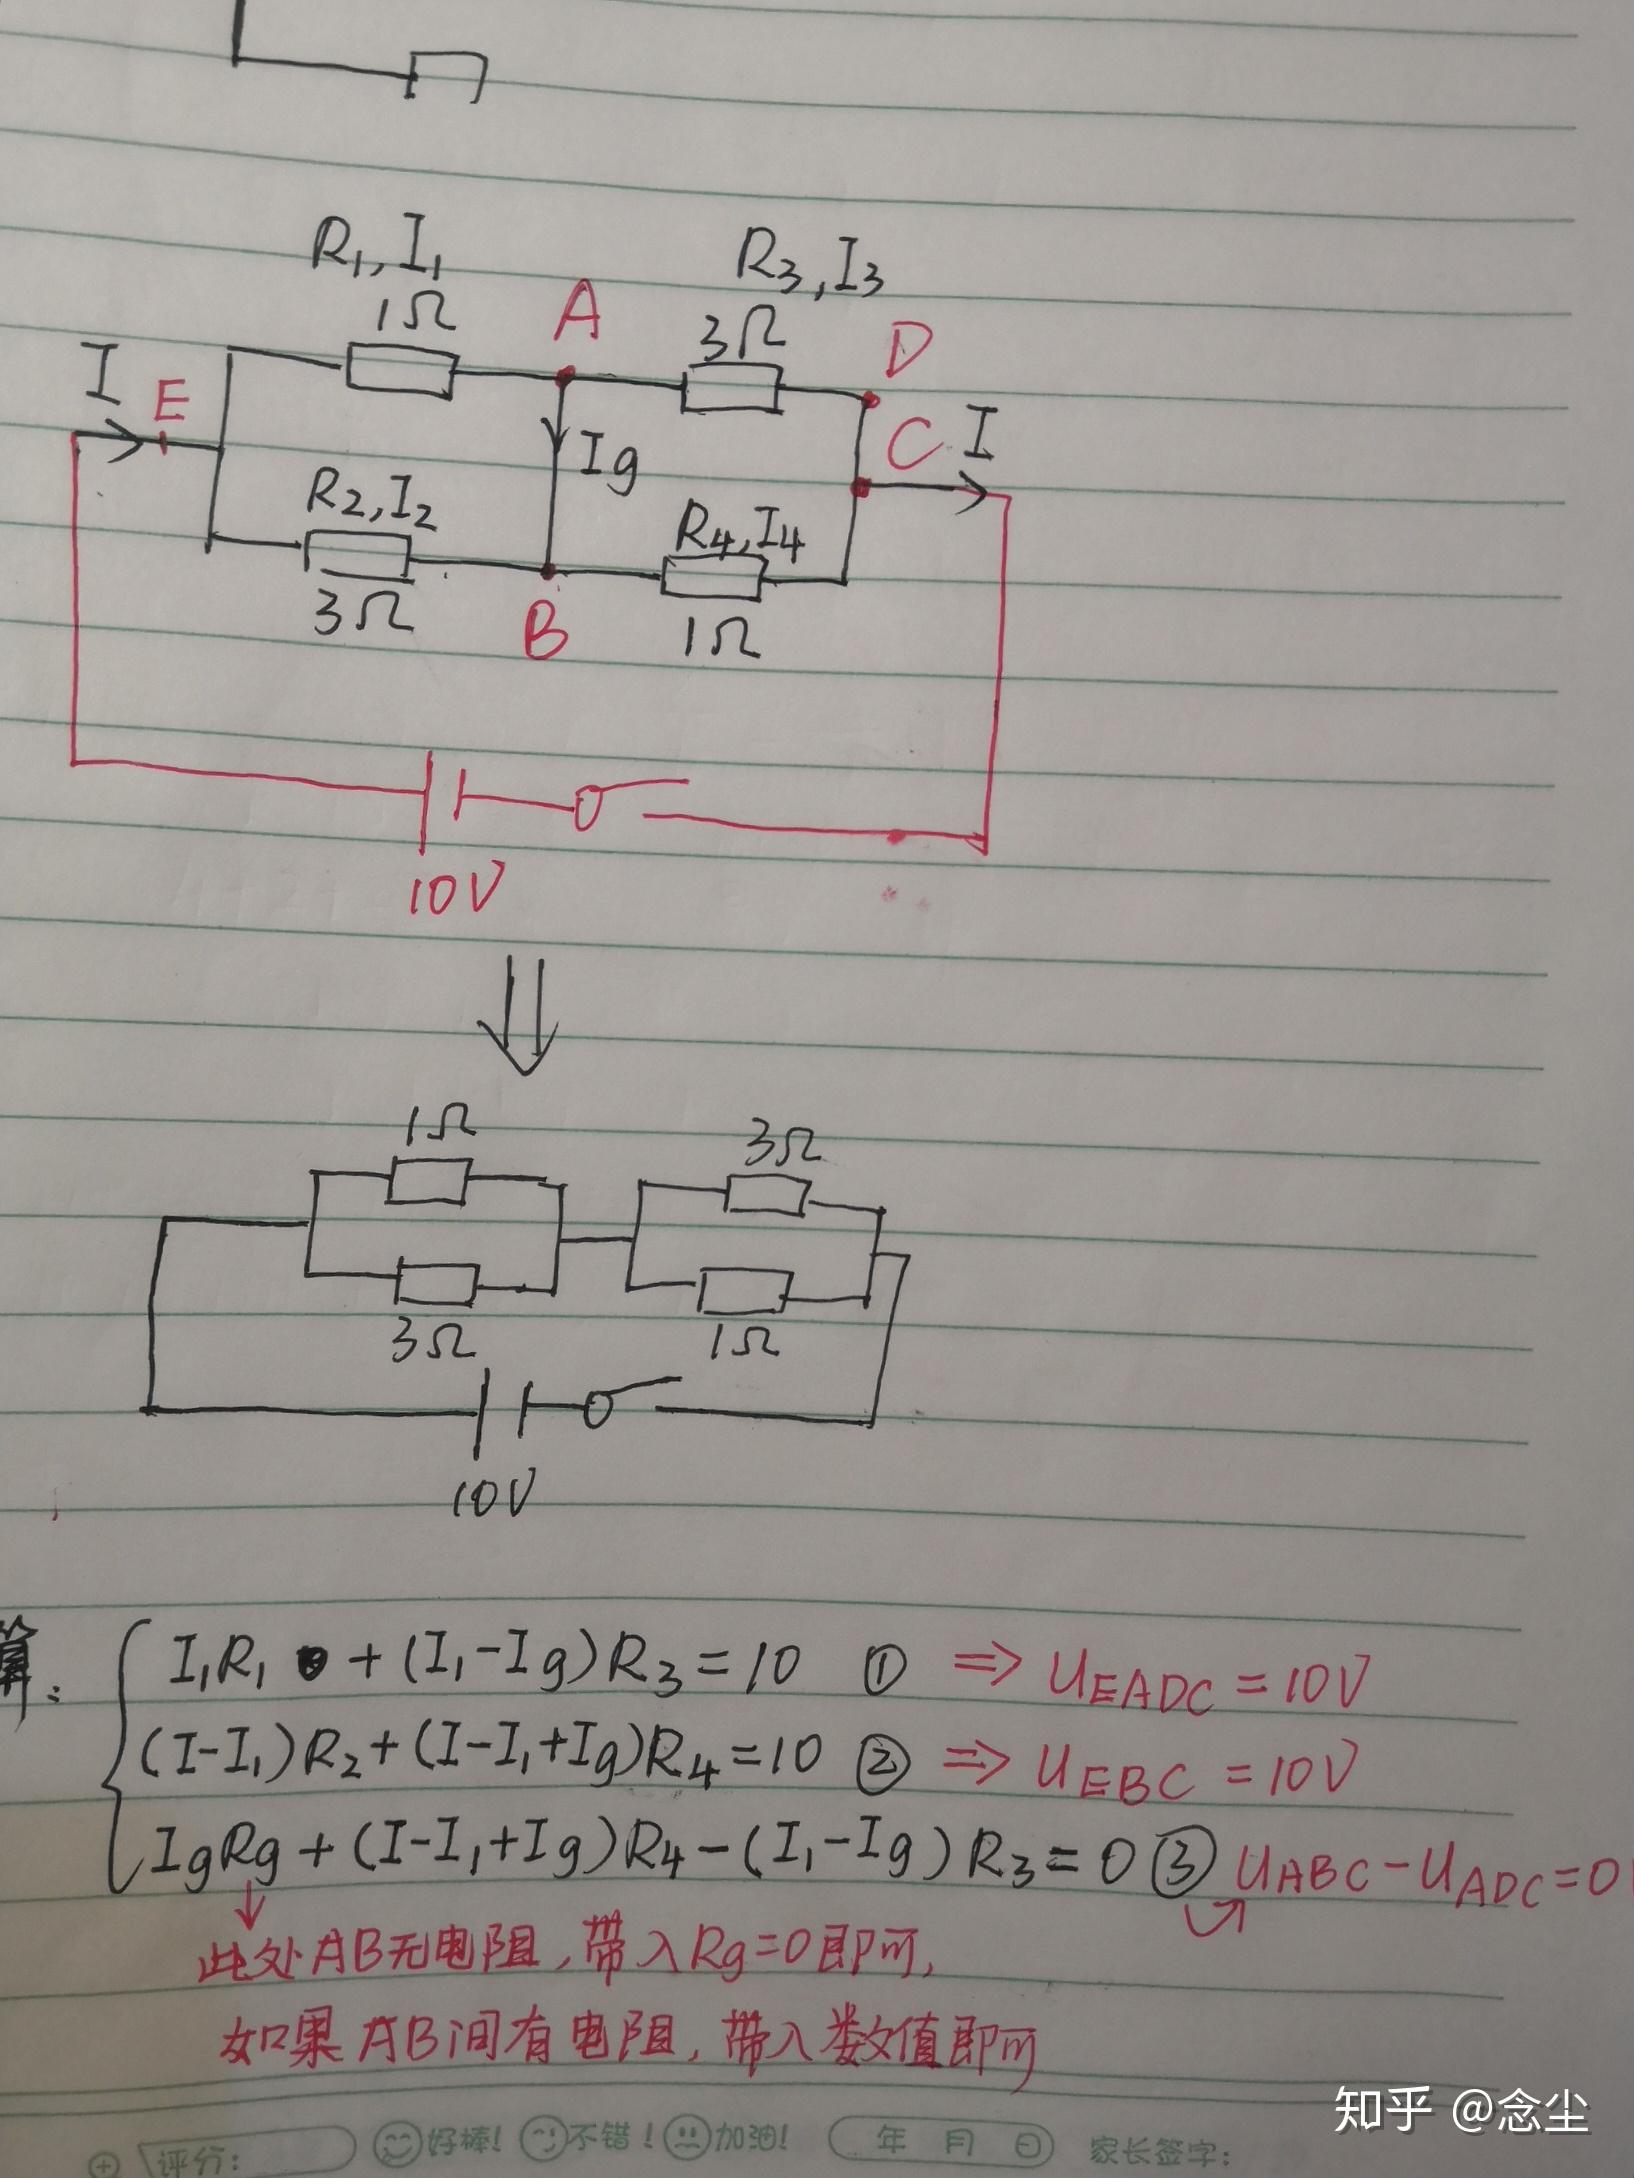 R₁,I₁
1Ω
R₃,I₃
3Ω
A
D
I
E
C
I
Ig
R₂,I₂
3Ω
B
R₄,I₄
1Ω
10V
1Ω
3Ω
3Ω
1Ω
10V
算:
I₁R₁ + (I₁-Ig)R₃=10 ① ⇒ UEADC=10V
(I-I₁)R₂+(I-I₁+Ig)R₄=10 ② ⇒ UEBC=10V
IgRg+(I-I₁+Ig)R₄-(I₁-Ig)R₃=0 ③ UABC-UADC=0
此处AB无电阻,带入Rg=0即可,
如果AB间有电阻,带入数值即可
评分: 好棒! 不错! 加油! 年 月 日 家长签字:
知乎 @念尘